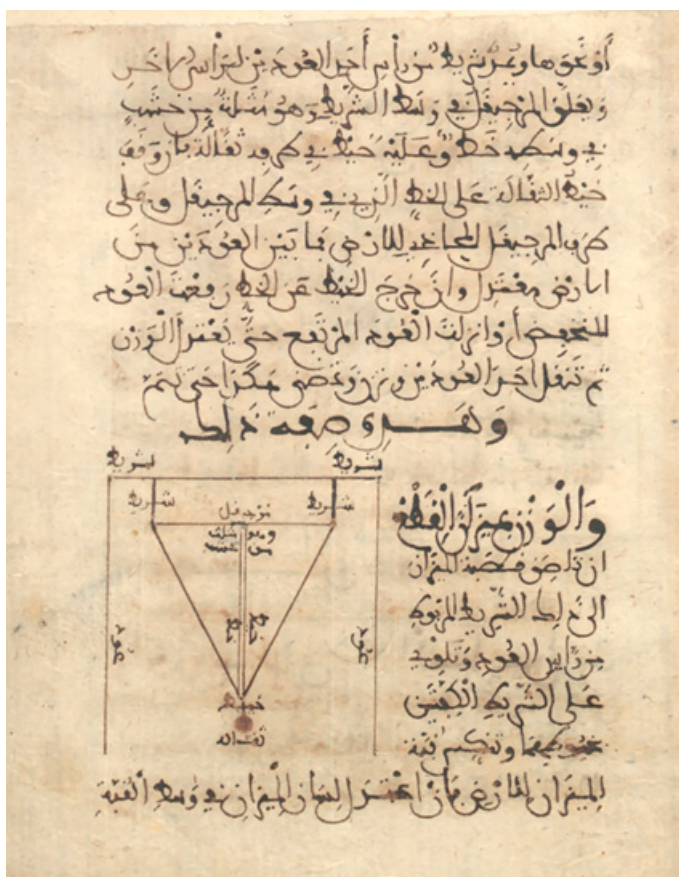 أو نحوها ويمد شريط من رأس أحد العودين لرأس الاخر
ويعلق المرجيقل في وسط الشريط وهو مثلث من خشب
في وسطه خط وعليه خيط في طرفه ثقالة فان وقف
خيط الثقالة على الخط الذي في وسط المرجيقل وعلى
طرف المرجيقل المحاذي للارض فما بين العودين من
الارض معتدل وان خرج الخيط عن الخط رفعت العود
المنخفض أو انزلت العود المرتفع حتى يعتدل الوزن
ثم تنقل احد العودين وتزن وتمضي هكذا حتى يتم
وهذه صفة ذلك
شريط
شريط
شريط
شريط
مرجيقل
وهو مثلث
من خشب
خط
خيط
عود
عود
ثقالة
والوزن بميزان
ان تلصق قصبة الميزان
الى ذلك الشريط المربوط
من رأس العود وتلوي
على الشريط الكفتين
خيوطهما وتنكس قبة
الميزان للارض فان اعتدل لسان الميزان في وسط القبة